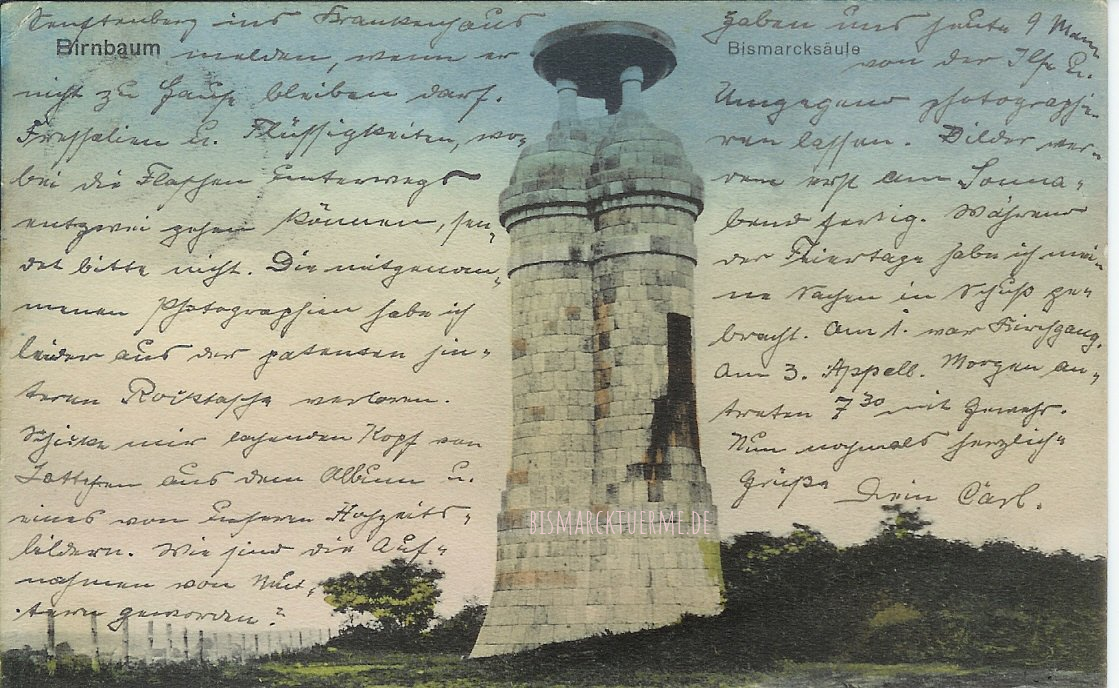 Senftenberg ins Krankenhaus
Birnbaum
melden, wenn er
nicht zu Hause bleiben darf.
Fressalien u. Flüssigkeiten, wo-
bei die Flaschen unterwegs
entzwei gehen können, sen-
det bitte nicht. Die mitgenom-
menen Photographien habe ich
leider aus der patenten hin-
teren Rocktasche verloren.
Schicke mir lachenden Kopf von
Lottchen aus dem Album u.
eines von unseren Hochzeits-
bildern. Wie sind die Auf-
nahmen von Mut-
tern geworden?
Haben uns heute 9 Mann
Bismarcksäule
von der Ilse u.
Umgegend photographie-
ren lassen. Bilder wer-
den erst am Sonna-
bend fertig. Während
der Feiertage habe ich mei-
ne Sachen in Schuß ge-
bracht. Am 1. war Kirchgang.
Am 3. Appell. Morgen an-
treten 7 30 mit Gewehr.
Nun nochmals herzlich
Grüße Dein Carl.
BISMARCKTUERME.DE